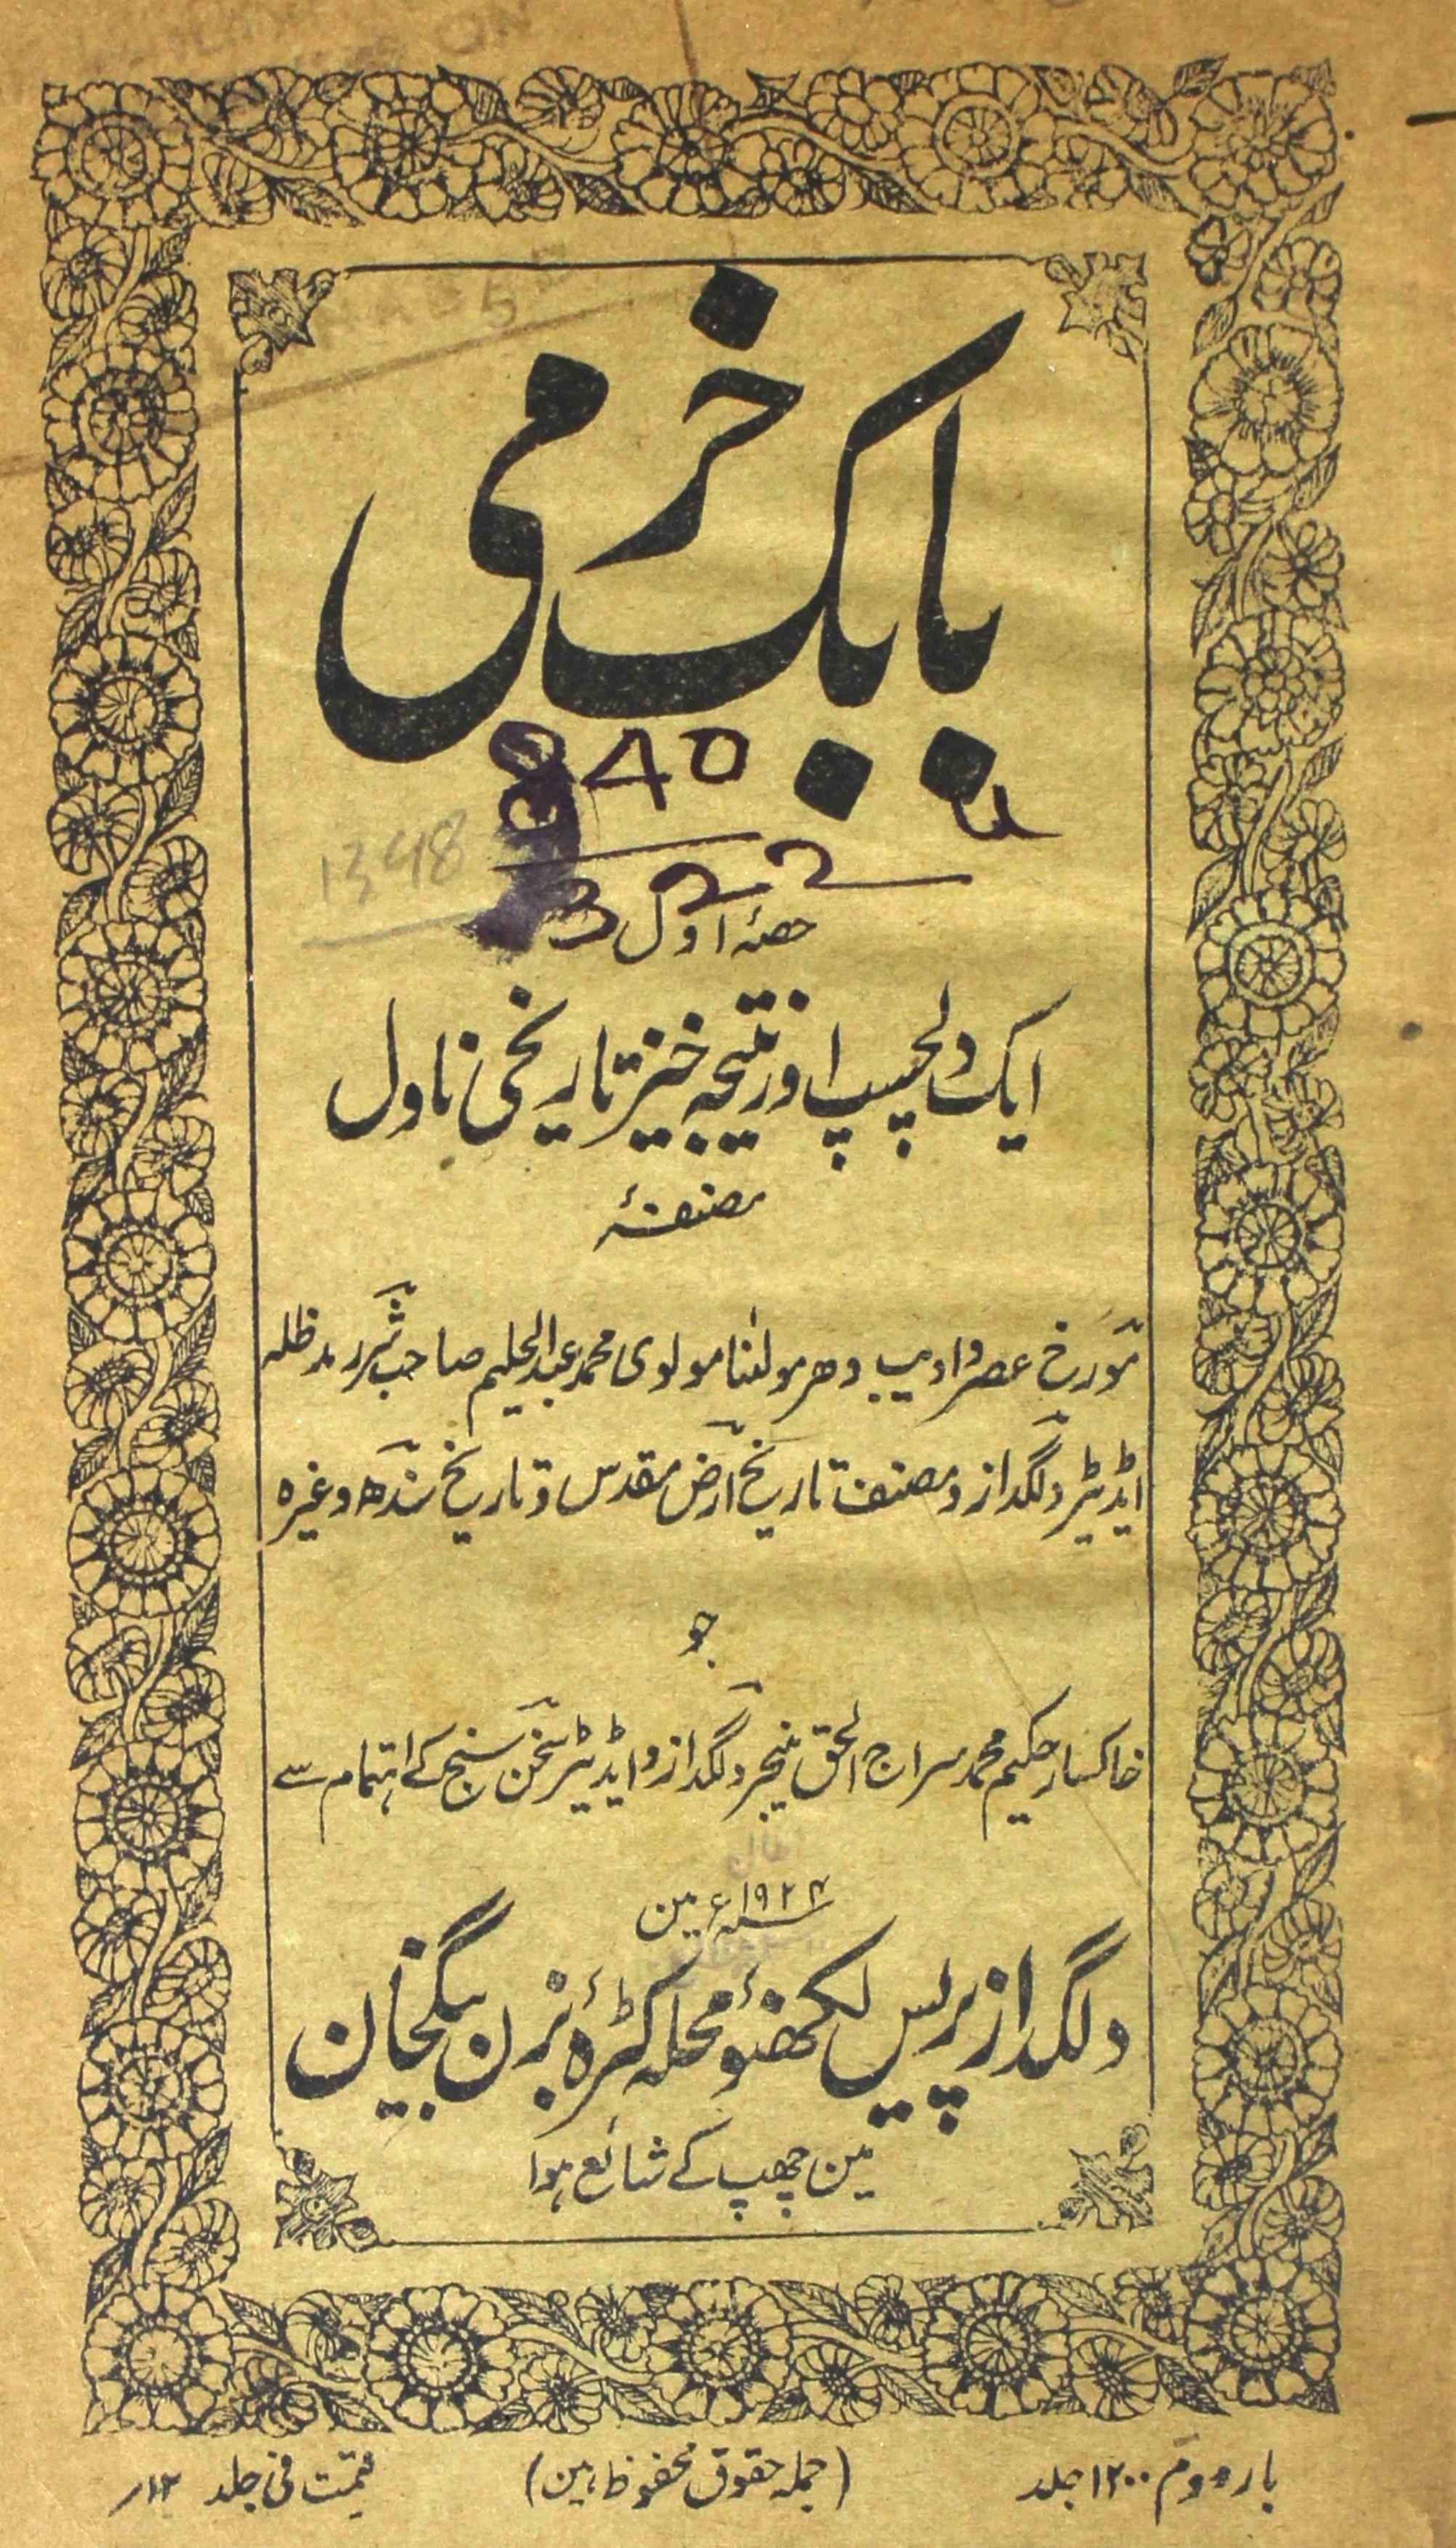 بابک خرمی
840 U
322
3
1348
حصۂ اول
ایک دلچسپ اور نتیجہ خیز تاریخی ناول
مصنفۂ
مورخ عصر و ادیب دهر مولٰنا مولوی محمد عبدالحلیم صاحب شرر مدظلہ
اڈیٹر دلگداز و مصنف تاریخ ارض مقدس و تاریخ سندھ وغیرہ
جو
خاکسار حکیم محمد سراج الحق منیجر دلگداز و ایڈیٹر سخن سنج کے اہتمام سے
سنہ ۱۹۲۴ء مین
دلگداز پریس لکھنؤ محلہ کٹرۂ بزن بیگخان
مین چھپ کے شائع ہوا
بار دوم ۱۲۰۰ جلد (جملہ حقوق محفوظ ہین) قیمت فی جلد ۱۲؍